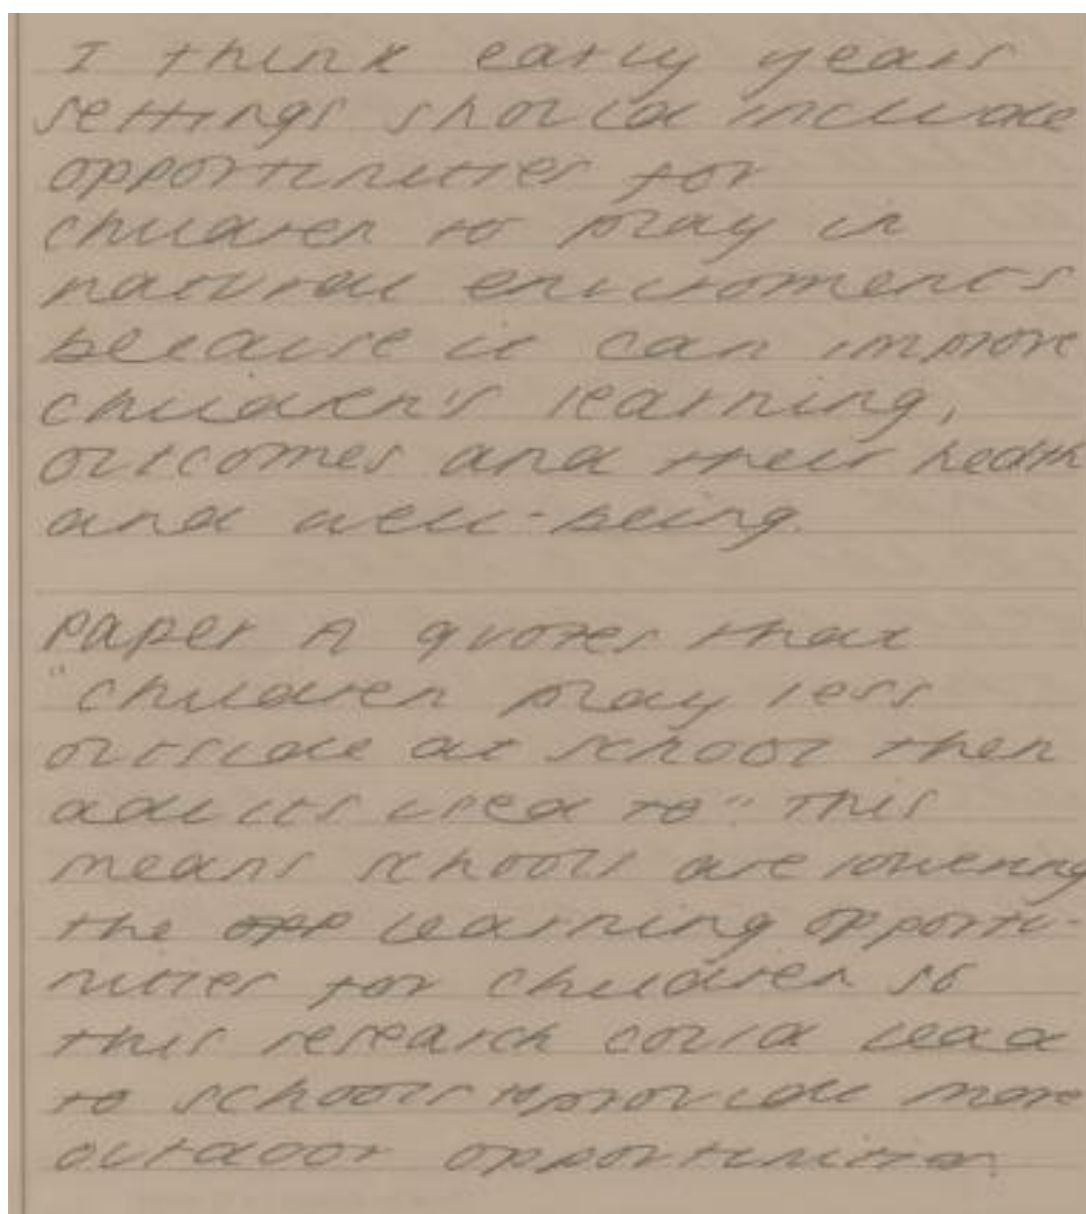 I think early years
settings should include
opportunities for
children to play in
natural enviroments
because it can improve
children's learning,
outcomes and their health
and well-being.
Paper A quotes that
"children play less
outside at school then
adults used to" This
means schools are lowering
the opp learning opportu-
nities for children so
this research could lead
to schools to provide more
outdoor opportunities.